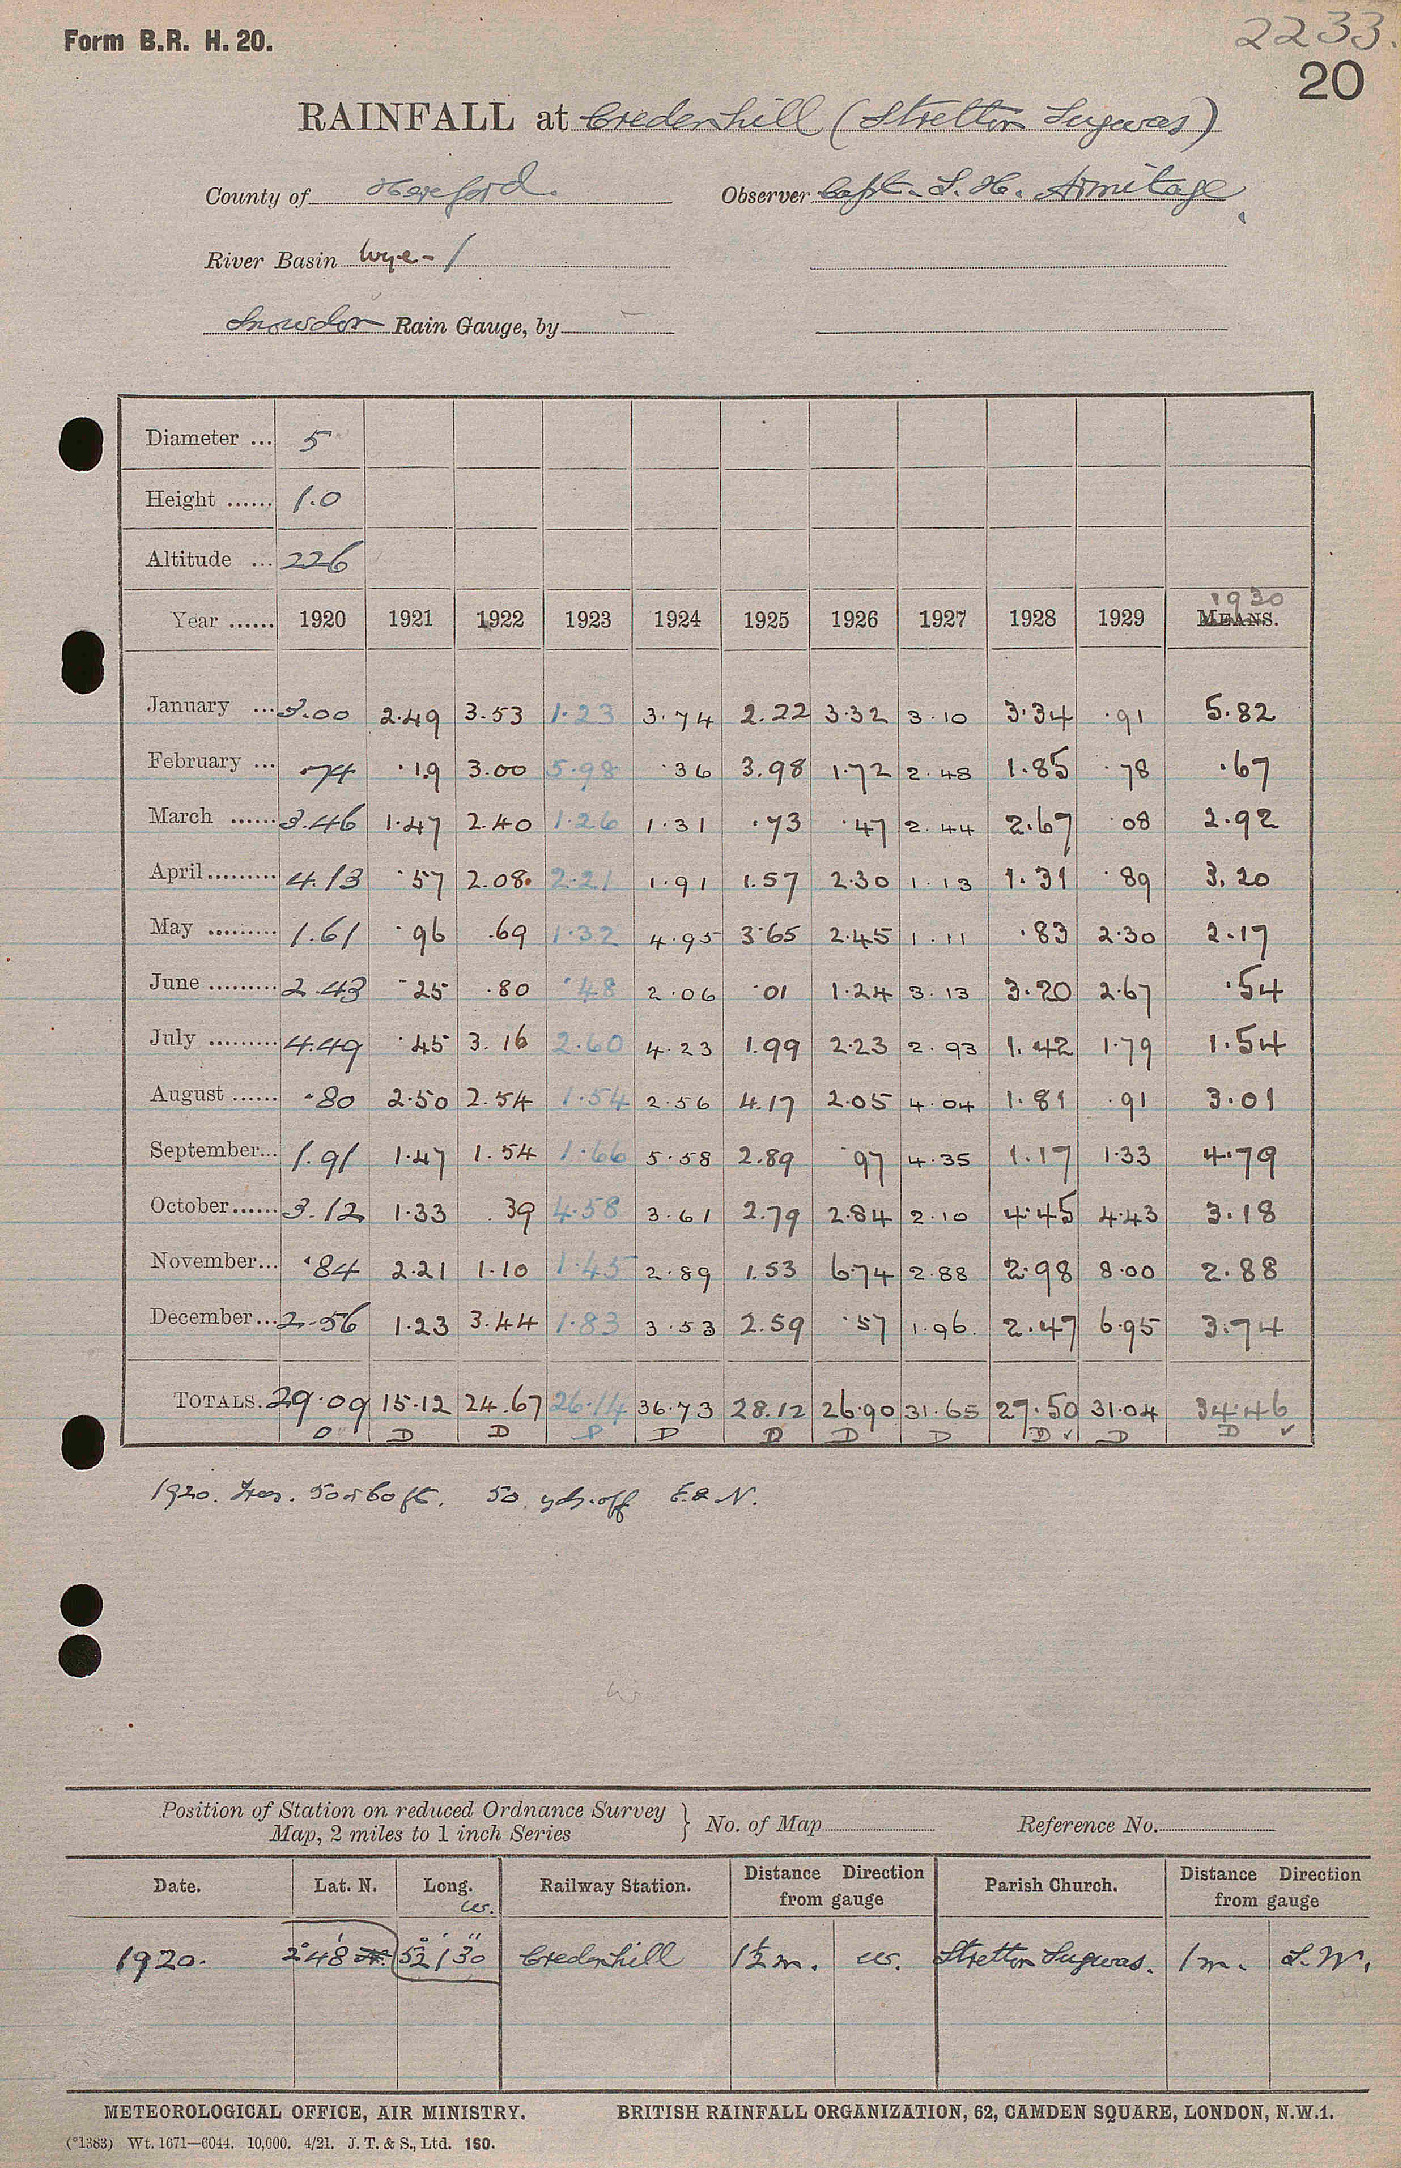 Form B.R. H. 20.
2233.
20
RAINFALL at Credenhill (Stretton Sugwas)
County of Hereford. Observer Capt. L. H. Armitage
River Basin Wye-1
Snowdon Rain Gauge, by
Diameter ... 5
Height ...... 1.0
Altitude ... 226
1930
Year ...... 1920 1921 1922 1923 1924 1925 1926 1927 1928 1929 MEANS.
January ... 3.00 2.49 3.53 1.23 3.74 2.22 3.32 3.10 3.34 .91 5.82
February ... .74 .19 3.00 5.98 .36 3.98 1.72 2.48 1.85 .78 .67
March ...... 3.46 1.47 2.40 1.26 1.31 .73 .47 2.44 2.67 .08 2.92
April ......... 4.13 .57 2.08 2.21 1.91 1.57 2.30 1.13 1.31 .89 3.20
May ......... 1.61 .96 .69 1.32 4.95 3.65 2.45 1.11 .83 2.30 2.17
June ......... 2.43 .25 .80 .48 2.06 .01 1.24 3.13 3.20 2.67 .54
July ......... 4.49 .45 3.16 2.60 4.23 1.99 2.23 2.93 1.42 1.79 1.54
August ...... .80 2.50 2.54 1.54 2.56 4.17 2.05 4.04 1.81 .91 3.01
September... 1.91 1.47 1.54 1.66 5.58 2.89 .97 4.35 1.17 1.33 4.79
October...... 3.12 1.33 .39 4.58 3.61 2.79 2.84 2.10 4.45 4.43 3.18
November... .84 2.21 1.10 1.45 2.89 1.53 6.74 2.88 2.98 8.00 2.88
December... 2.56 1.23 3.44 1.83 3.53 2.59 .57 1.96 2.47 6.95 3.74
TOTALS. 29.09 15.12 24.67 26.14 36.73 28.12 26.90 31.65 27.50 31.04 34.46
D D D D D D D D D ✓ D D ✓
1920. Trees. 50 or 60 ft. 50 yds. off E. & N.
Position of Station on reduced Ordnance Survey
Map, 2 miles to 1 inch Series } No. of Map Reference No.
Date. Lat. N. Long. W. Railway Station. Distance Direction from gauge Parish Church. Distance Direction from gauge
1920. 2°48' 52°1'30" Credenhill 1½ m. W. Stretton Sugwas. 1 m. S.W.
METEOROLOGICAL OFFICE, AIR MINISTRY. BRITISH RAINFALL ORGANIZATION, 62, CAMDEN SQUARE, LONDON, N.W.1.
(*1383) Wt. 1671—6044. 10,000. 4/21. J. T. & S., Ltd. 160.